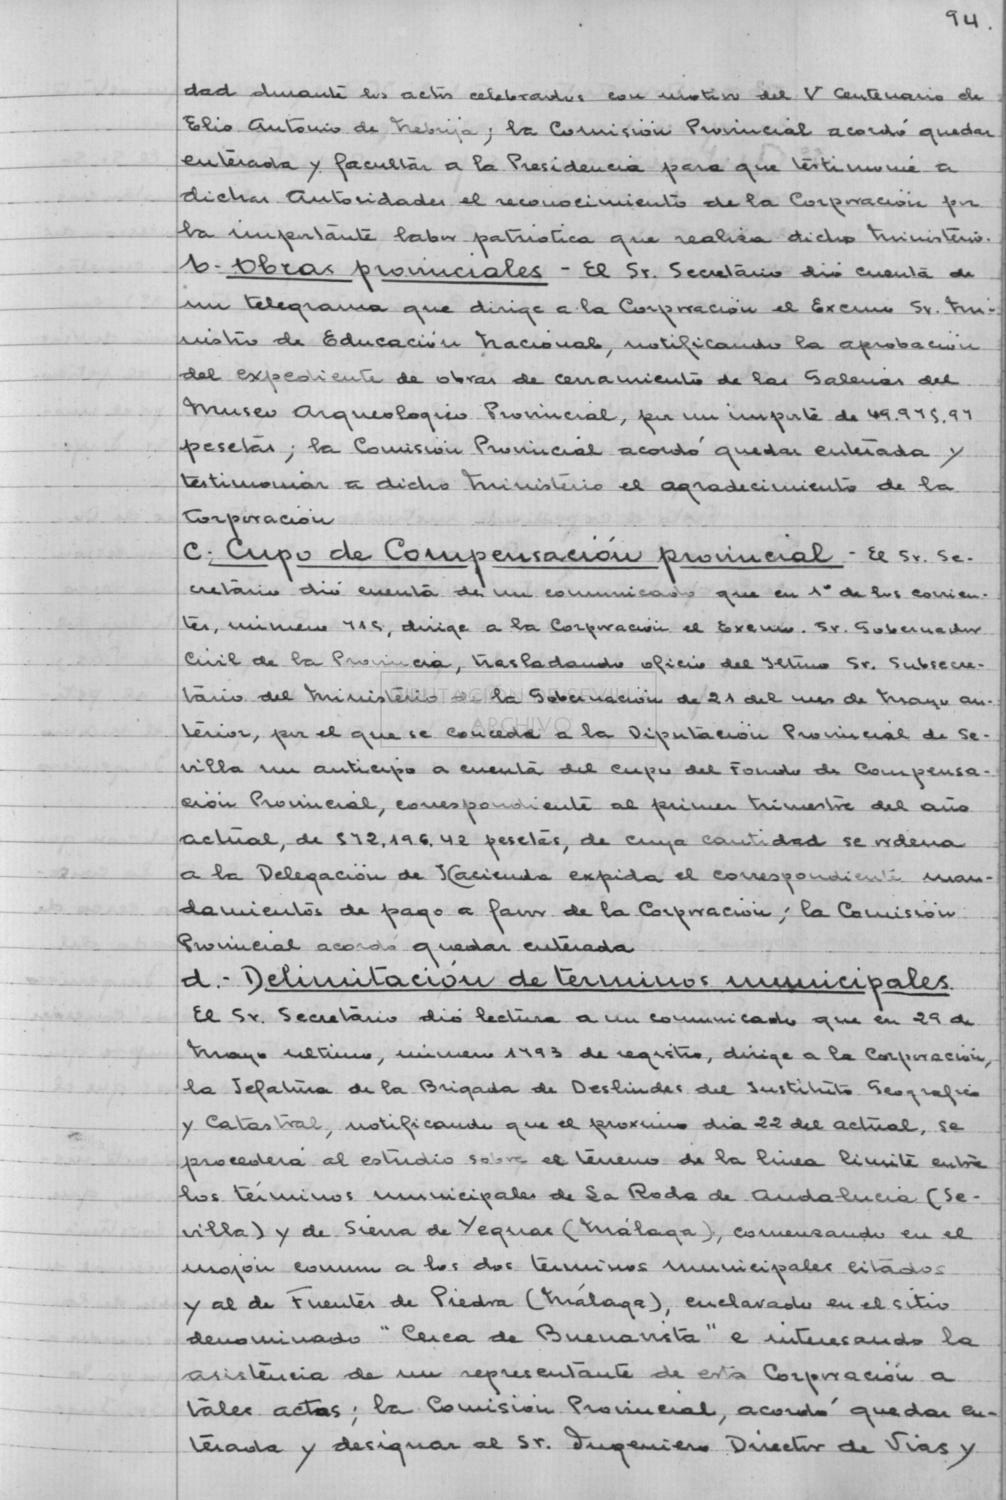 94.
dad durante los actos celebrados con motivo del V Centenario de
Elio Antonio de Nebrija; la Comisión Provincial acordó quedar
enterada y facultar a la Presidencia para que testimonie a
dichas Autoridades el reconocimiento de la Corporación por
la importante labor patriotica que realiza dicho Ministerio.
b- Obras provinciales - El Sr. Secretario dió cuenta de
un telegrama que dirige a la Corporación el Excmo Sr. Mi-
nistro de Educación Nacional, notificando la aprobación
del expediente de obras de cerramiento de las Galerias del
Museo Arqueologico Provincial, por un importe de 49.975.97
pesetas; la Comisión Provincial acordó quedar enterada y
testimoniar a dicho Ministerio el agradecimiento de la
Corporación
C.- Cupo de Compensación provincial - El Sr. Se-
cretario dió cuenta de un comunicado que en 1º de los corrien-
tes, número 715, dirige a la Corporación el Excmo. Sr. Gobernador
Civil de la Provincia, trasladando oficio del Iltmo Sr. Subsecre-
tario del Ministerio de la Gobernación de 21 del mes de Mayo an-
DIPUTACION DE SEVILLA
ARCHIVO
terior, por el que se concede a la Diputación Provincial de Se-
villa un anticipo a cuenta del cupo del Fondo de Compensa-
ción Provincial, correspondiente al primer trimestre del año
actual, de 572.196,42 pesetas, de cuya cantidad se ordena
a la Delegación de Hacienda expida el correspondiente man-
damientos de pago a favor de la Corporación; la Comisión
Provincial acordó quedar enterada
d.- Delimitación de terminos municipales.
El Sr. Secretario dió lectura a un comunicado que en 29 de
Mayo ultimo, número 1793 de registro, dirige a la Corporación,
la Jefatura de la Brigada de Deslindes del Instituto Geografico
y Catastral, notificando que el proximo dia 22 del actual, se
procederá al estudio sobre el terreno de la linea limite entre
los términos municipales de La Roda de Andalucia (Se-
villa) y de Sierra de Yeguas (Málaga), comenzando en el
mojón comun a los dos terminos municipales citados
y al de Fuentes de Piedra (Málaga), enclavado en el sitio
denominado "Cerca de Buenavista" e interesando la
asistencia de un representante de esta Corporación a
tales actos; la Comisión Provincial, acordó quedar en-
terada y designar al Sr. Ingeniero Director de Vias y